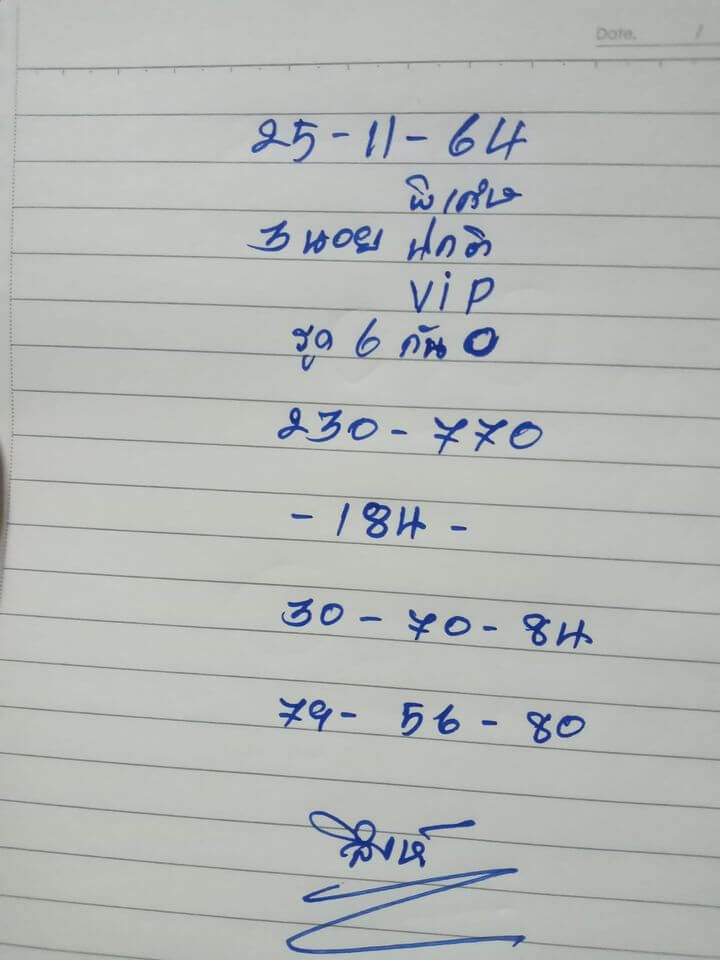 Date. /
25-11-64
พิเศษ
3 นอย ปกติ
ViP
รูด 6 กัน 0
230 - 770
- 184 -
30 - 70 - 84
79 - 56 - 80
สิงห์